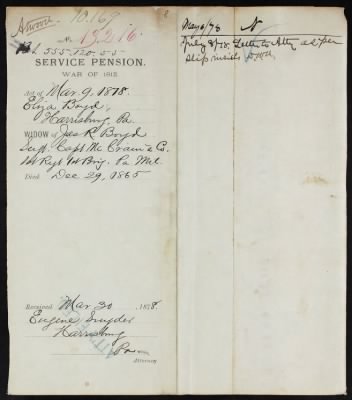 Atwood
10.169
No. 13216.
SERVICE PENSION.
WAR OF 1812
Act of Mar 9, 1878.
Eliza Boyd,
Harrisburg, Pa.
WIDOW of Jas R. Boyd
Capt. McCrain's Co.
1st Regt 1st Brig. Pa Mil.
Died Dec 29, 1865
Received Mar 30, 1878.
Eugene Snyder
Harrisburg
Pa
Attorney
May 6/78 N
Letter to Atty as per
slip within